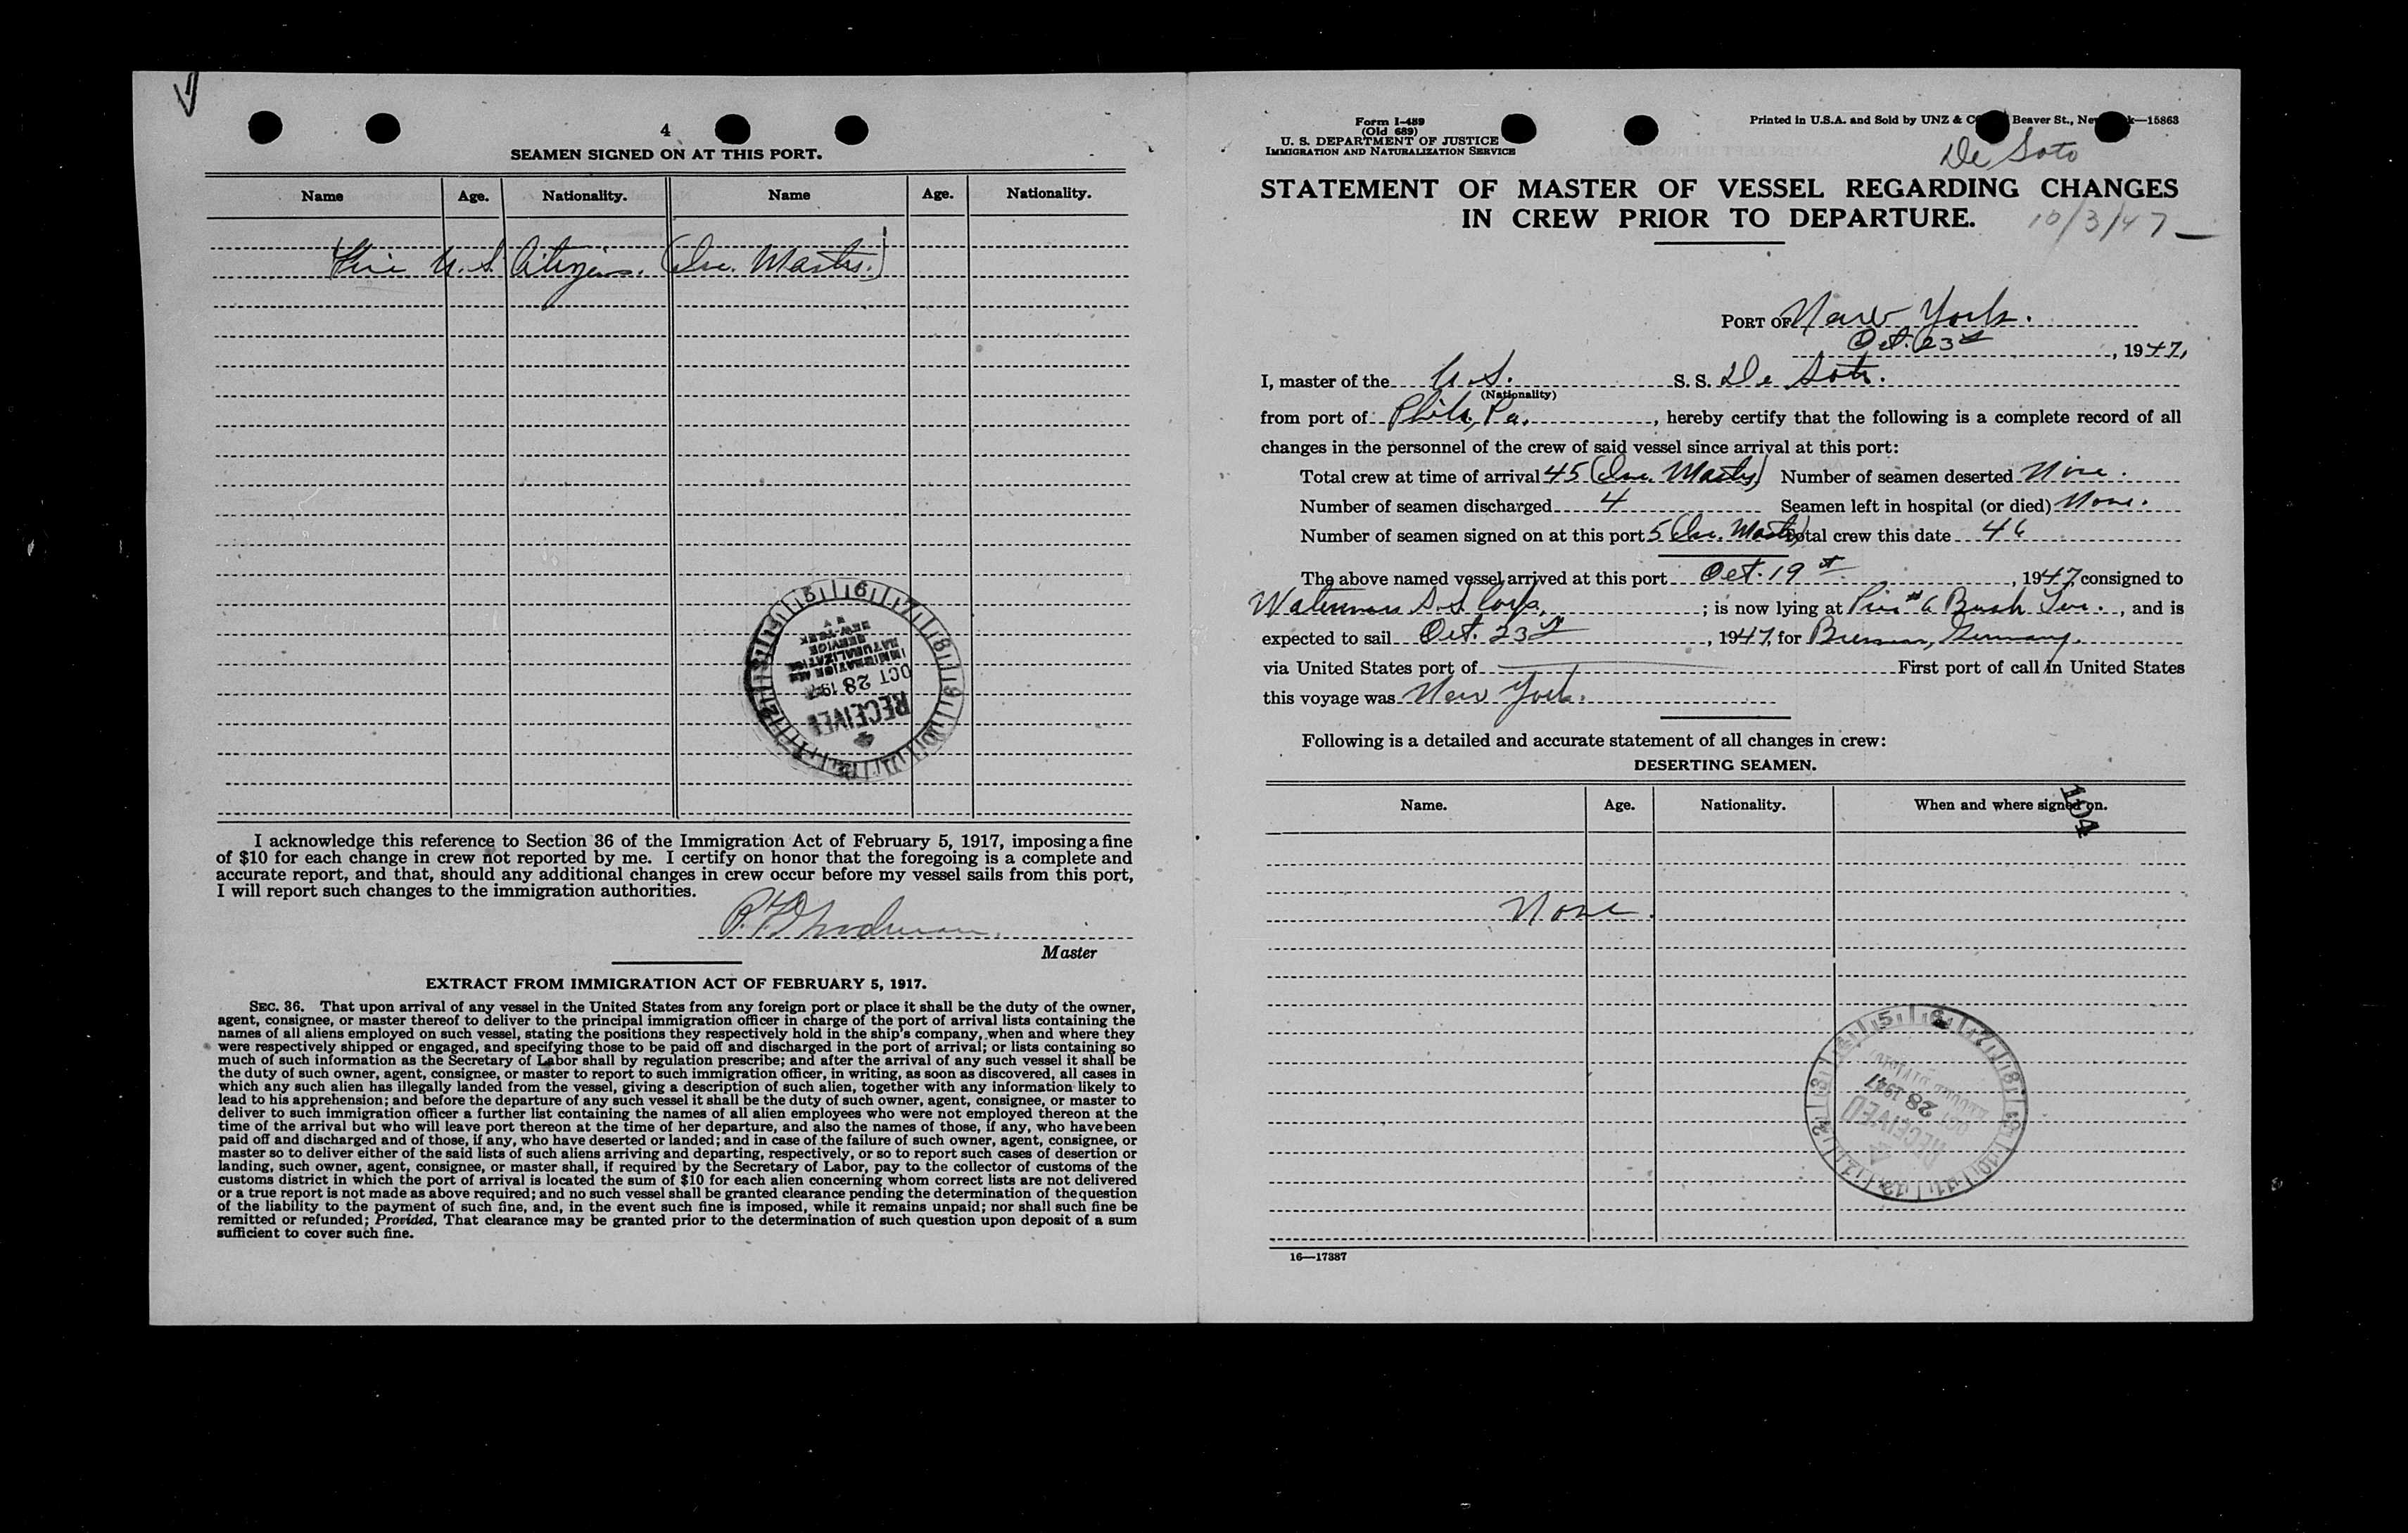 4
SEAMEN SIGNED ON AT THIS PORT.
Name Age. Nationality. Name Age. Nationality.
Five U.S. Citizens. (Inc. Master.)
RECEIVED
OCT 28 1947
IMMIGRATION AND
NATURALIZATION
SERVICE
NEW YORK
N Y
I acknowledge this reference to Section 36 of the Immigration Act of February 5, 1917, imposing a fine
of $10 for each change in crew not reported by me. I certify on honor that the foregoing is a complete and
accurate report, and that, should any additional changes in crew occur before my vessel sails from this port,
I will report such changes to the immigration authorities.
Master
EXTRACT FROM IMMIGRATION ACT OF FEBRUARY 5, 1917.
SEC. 36. That upon arrival of any vessel in the United States from any foreign port or place it shall be the duty of the owner,
agent, consignee, or master thereof to deliver to the principal immigration officer in charge of the port of arrival lists containing the
names of all aliens employed on such vessel, stating the positions they respectively hold in the ship's company, when and where they
were respectively shipped or engaged, and specifying those to be paid off and discharged in the port of arrival; or lists containing so
much of such information as the Secretary of Labor shall by regulation prescribe; and after the arrival of any such vessel it shall be
the duty of such owner, agent, consignee, or master to report to such immigration officer, in writing, as soon as discovered, all cases in
which any such alien has illegally landed from the vessel, giving a description of such alien, together with any information likely to
lead to his apprehension; and before the departure of any such vessel it shall be the duty of such owner, agent, consignee, or master to
deliver to such immigration officer a further list containing the names of all alien employees who were not employed thereon at the
time of the arrival but who will leave port thereon at the time of her departure, and also the names of those, if any, who have been
paid off and discharged and of those, if any, who have deserted or landed; and in case of the failure of such owner, agent, consignee, or
master so to deliver either of the said lists of such aliens arriving and departing, respectively, or so to report such cases of desertion or
landing, such owner, agent, consignee, or master shall, if required by the Secretary of Labor, pay to the collector of customs of the
customs district in which the port of arrival is located the sum of $10 for each alien concerning whom correct lists are not delivered
or a true report is not made as above required; and no such vessel shall be granted clearance pending the determination of the question
of the liability to the payment of such fine, and, in the event such fine is imposed, while it remains unpaid; nor shall such fine be
remitted or refunded; Provided, That clearance may be granted prior to the determination of such question upon deposit of a sum
sufficient to cover such fine.
Form I-489
(Old 689)
U. S. DEPARTMENT OF JUSTICE
IMMIGRATION AND NATURALIZATION SERVICE
Printed in U.S.A. and Sold by UNZ & C Beaver St., New k—15863
De Soto
STATEMENT OF MASTER OF VESSEL REGARDING CHANGES
IN CREW PRIOR TO DEPARTURE.
10/3/47
PORT OF New York.
Oct. 23rd, 1947,
I, master of the U.S. S. S. De Soto.
(Nationality)
from port of Phila, Pa., hereby certify that the following is a complete record of all
changes in the personnel of the crew of said vessel since arrival at this port:
Total crew at time of arrival 45 (Inc. Master) Number of seamen deserted None.
Number of seamen discharged 4 Seamen left in hospital (or died) None.
Number of seamen signed on at this port 5 (Inc. Master) Total crew this date 46
The above named vessel arrived at this port Oct. 19, 1947, consigned to
Waterman S.S. Corp.; is now lying at Pier #6 Bush Ter., and is
expected to sail Oct. 23rd, 1947, for Bremen, Germany.
via United States port of First port of call in United States
this voyage was New York.
Following is a detailed and accurate statement of all changes in crew:
DESERTING SEAMEN.
Name. Age. Nationality. When and where signed on.
1104
None.
RECEIVED
OCT 28 1947
16—17387